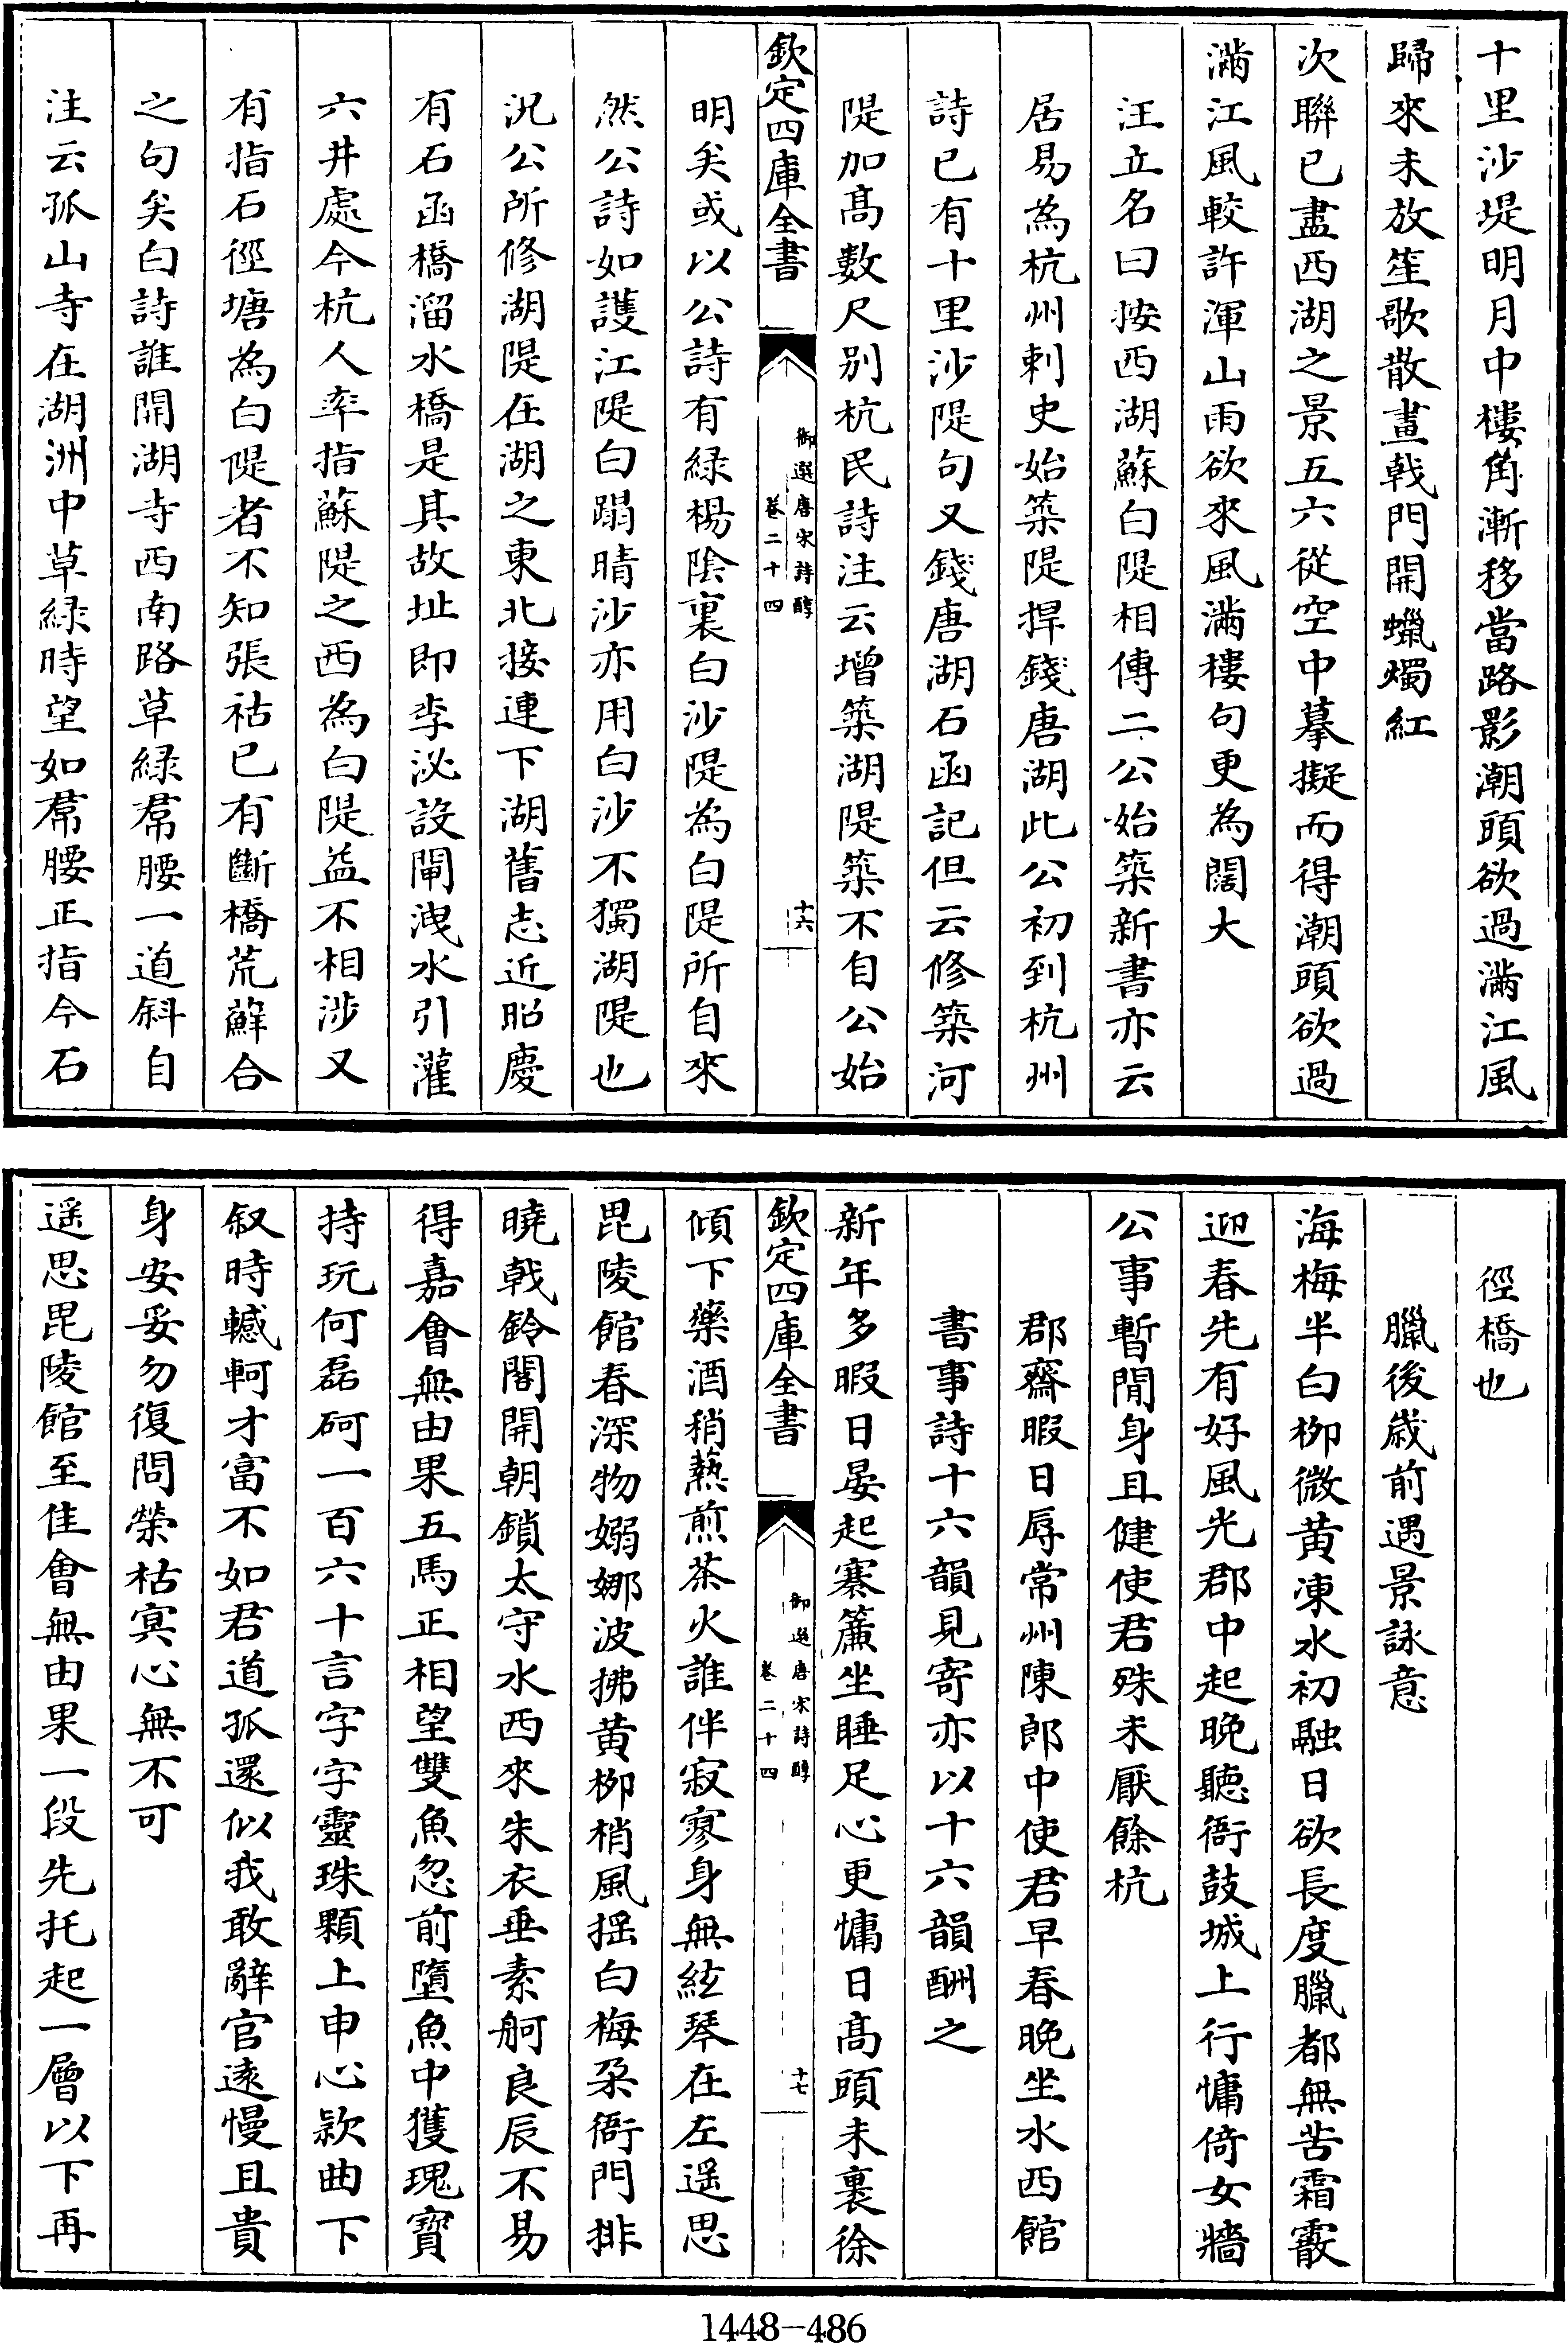 十里沙堤明月中樓角漸移當路影潮頭欲過滿江風
歸來未放笙歌散畫戟門開蠟燭紅
次聯已盡西湖之景五六從空中摹擬而得潮頭欲過
滿江風較許渾山雨欲來風滿樓句更為闊大
汪立名曰按西湖蘇白隄相傳二公始築新書亦云
居易為杭州刺史始築隄捍錢唐湖此公初到杭州
詩已有十里沙隄句又錢唐湖石函記但云修築河
隄加高數尺别杭民詩注云增築湖隄築不自公始
欽定四庫全書
御選唐宋詩醇
卷二十四
十六
明矣或以公詩有緑楊陰裏白沙隄為白隄所自來
然公詩如護江隄白蹋晴沙亦用白沙不獨湖隄也
況公所修湖隄在湖之東北接連下湖舊志近昭慶
有石函橋溜水橋是其故址即李泌設閘洩水引灌
六井處今杭人率指蘇隄之西為白隄益不相涉又
有指石徑塘為白隄者不知張祜已有斷橋荒蘚合
之句矣白詩誰開湖寺西南路草緑帬腰一道斜自
注云孤山寺在湖洲中草緑時望如帬腰正指今石
徑橋也
臘後歲前遇景詠意
海梅半白栁微黄凍水初融日欲長度臘都無苦霜霰
迎春先有好風光郡中起晚聽衙鼓城上行慵倚女牆
公事暫閒身且健使君殊未厭餘杭
郡齋暇日辱常州陳郎中使君早春晚坐水西館
書事詩十六韻見寄亦以十六韻酬之
新年多暇日晏起褰簾坐睡足心更慵日高頭未裹徐
欽定四庫全書
御選唐宋詩醇
卷二十四
十七
傾下藥酒稍爇煎茶火誰伴寂寥身無絃琴在左遥思
毘陵館春深物嫋娜波拂黄栁梢風摇白梅朶衙門排
曉戟鈴閣開朝鎖太守水西來朱衣垂素舸良辰不易
得嘉會無由果五馬正相望雙魚忽前墮魚中獲瑰寶
持玩何磊砢一百六十言字字靈珠顆上申心欵曲下
叙時轗軻才富不如君道孤還似我敢辭官遠慢且貴
身安妥勿復問榮枯冥心無不可
遥思毘陵館至佳會無由果一段先托起一層以下再
1448-486